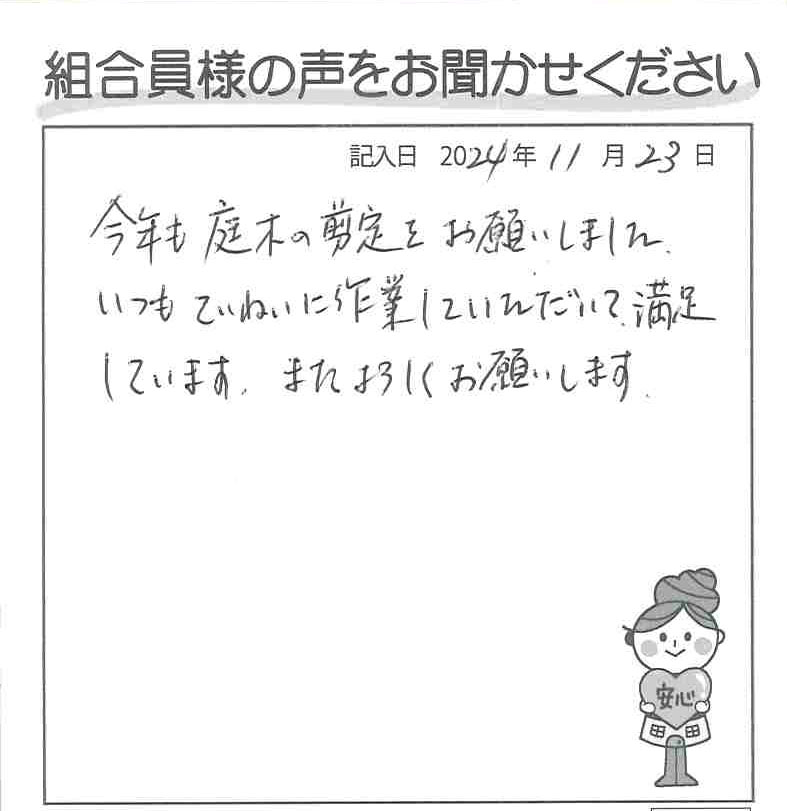 組合員様の声をお聞かせください
記入日 2024年11月23日
今年も庭木の剪定をお願いしました.
いつもていねいに作業していただいて、満足
しています. またよろしくお願いします.
安心